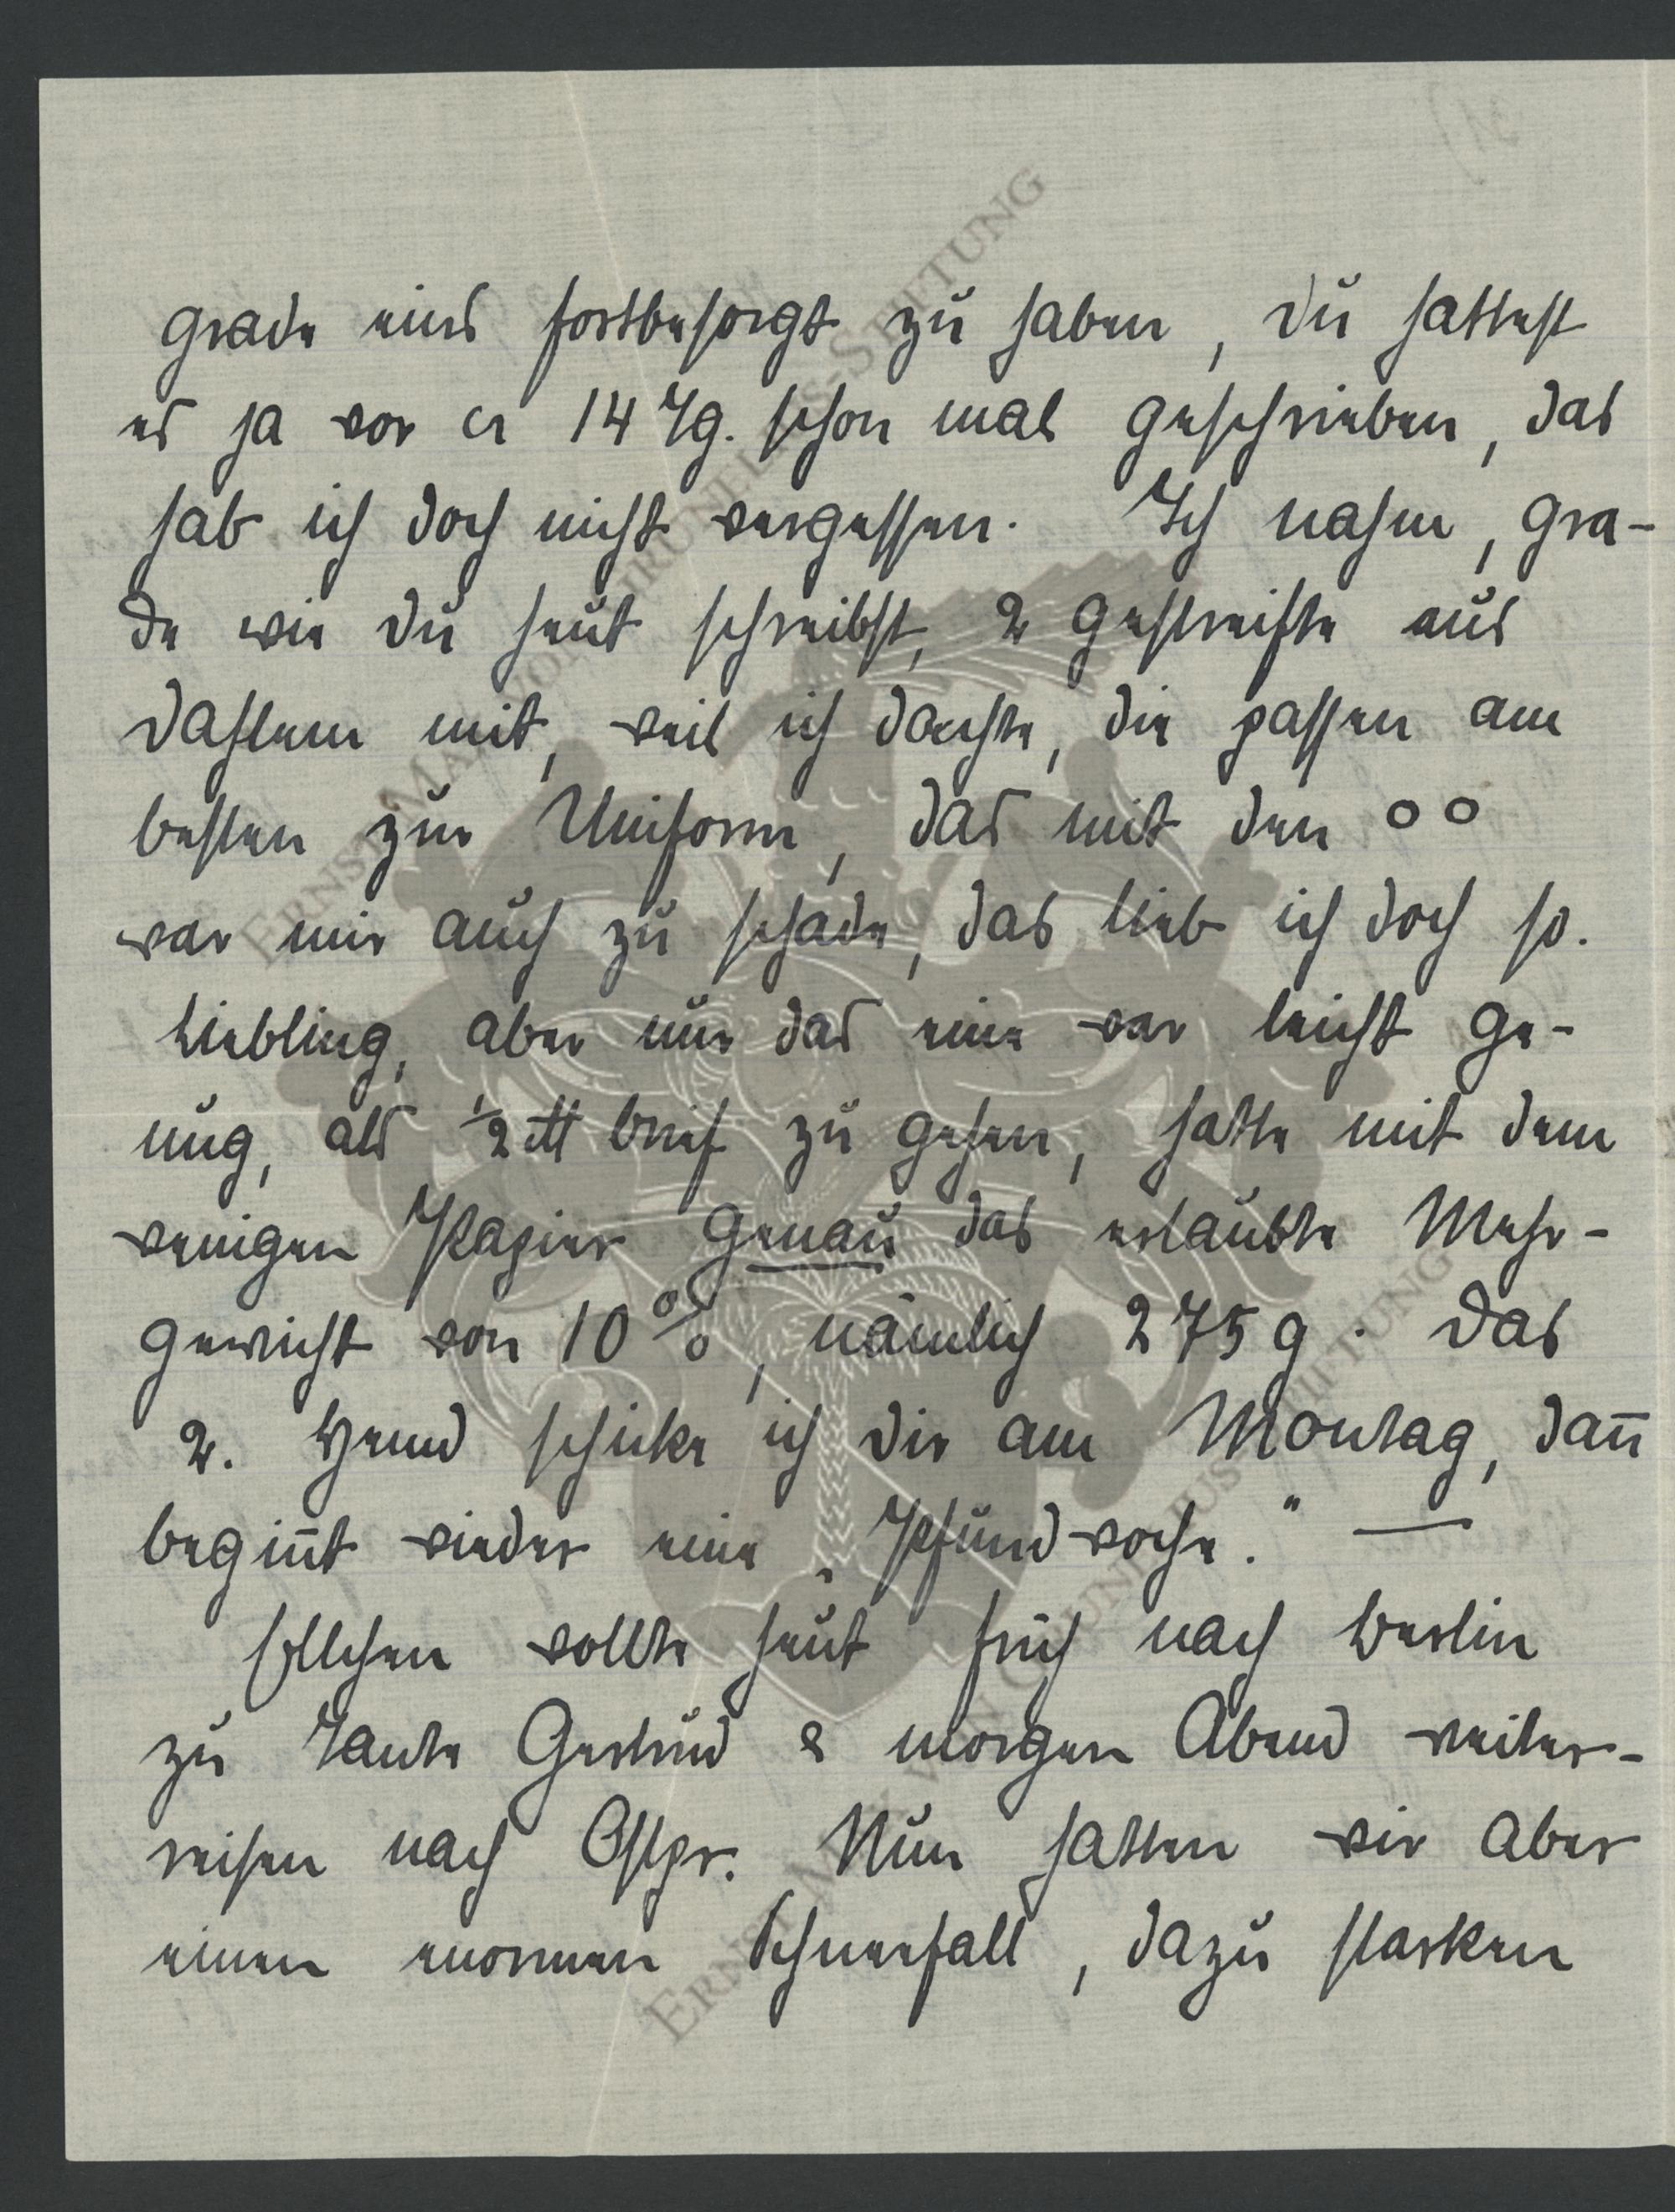 grade eins fortbesorgt zu haben, du hattest
es ja vor cr 14 Tg. schon mal geschrieben, das
hab ich doch nicht vergessen. Ich nahm, gra-
de wie du heut schreibst, 2 gestreifte aus
Dahlem mit, weil ich dachte, die passen am
besten zur Uniform, das mit den oo
war mir auch zu schade, das lieb ich doch so.
Liebling, aber nur das eine war leicht ge-
nug, als ½ ℔ Brief zu gehen, hatte mit dem
wenigen Papier genau das erlaubte Mehr-
gewicht von 10%, nämlich 275 g. Das
2. Hemd schicke ich dir am Montag, dan̄
begin̄t wieder eine „Pfundwoche." —
Ellchen wollte heut früh nach Berlin
zu Tante Gertrud & morgen Abend weiter-
reisen nach Ostpr. Nun hatten wir aber
einen enormen Schneefall, dazu starken
ERNST MAGNUS VON GRUNELIUS-STIFTUNG
ERNST MAX VON GRUNELIUS-STIFTUNG